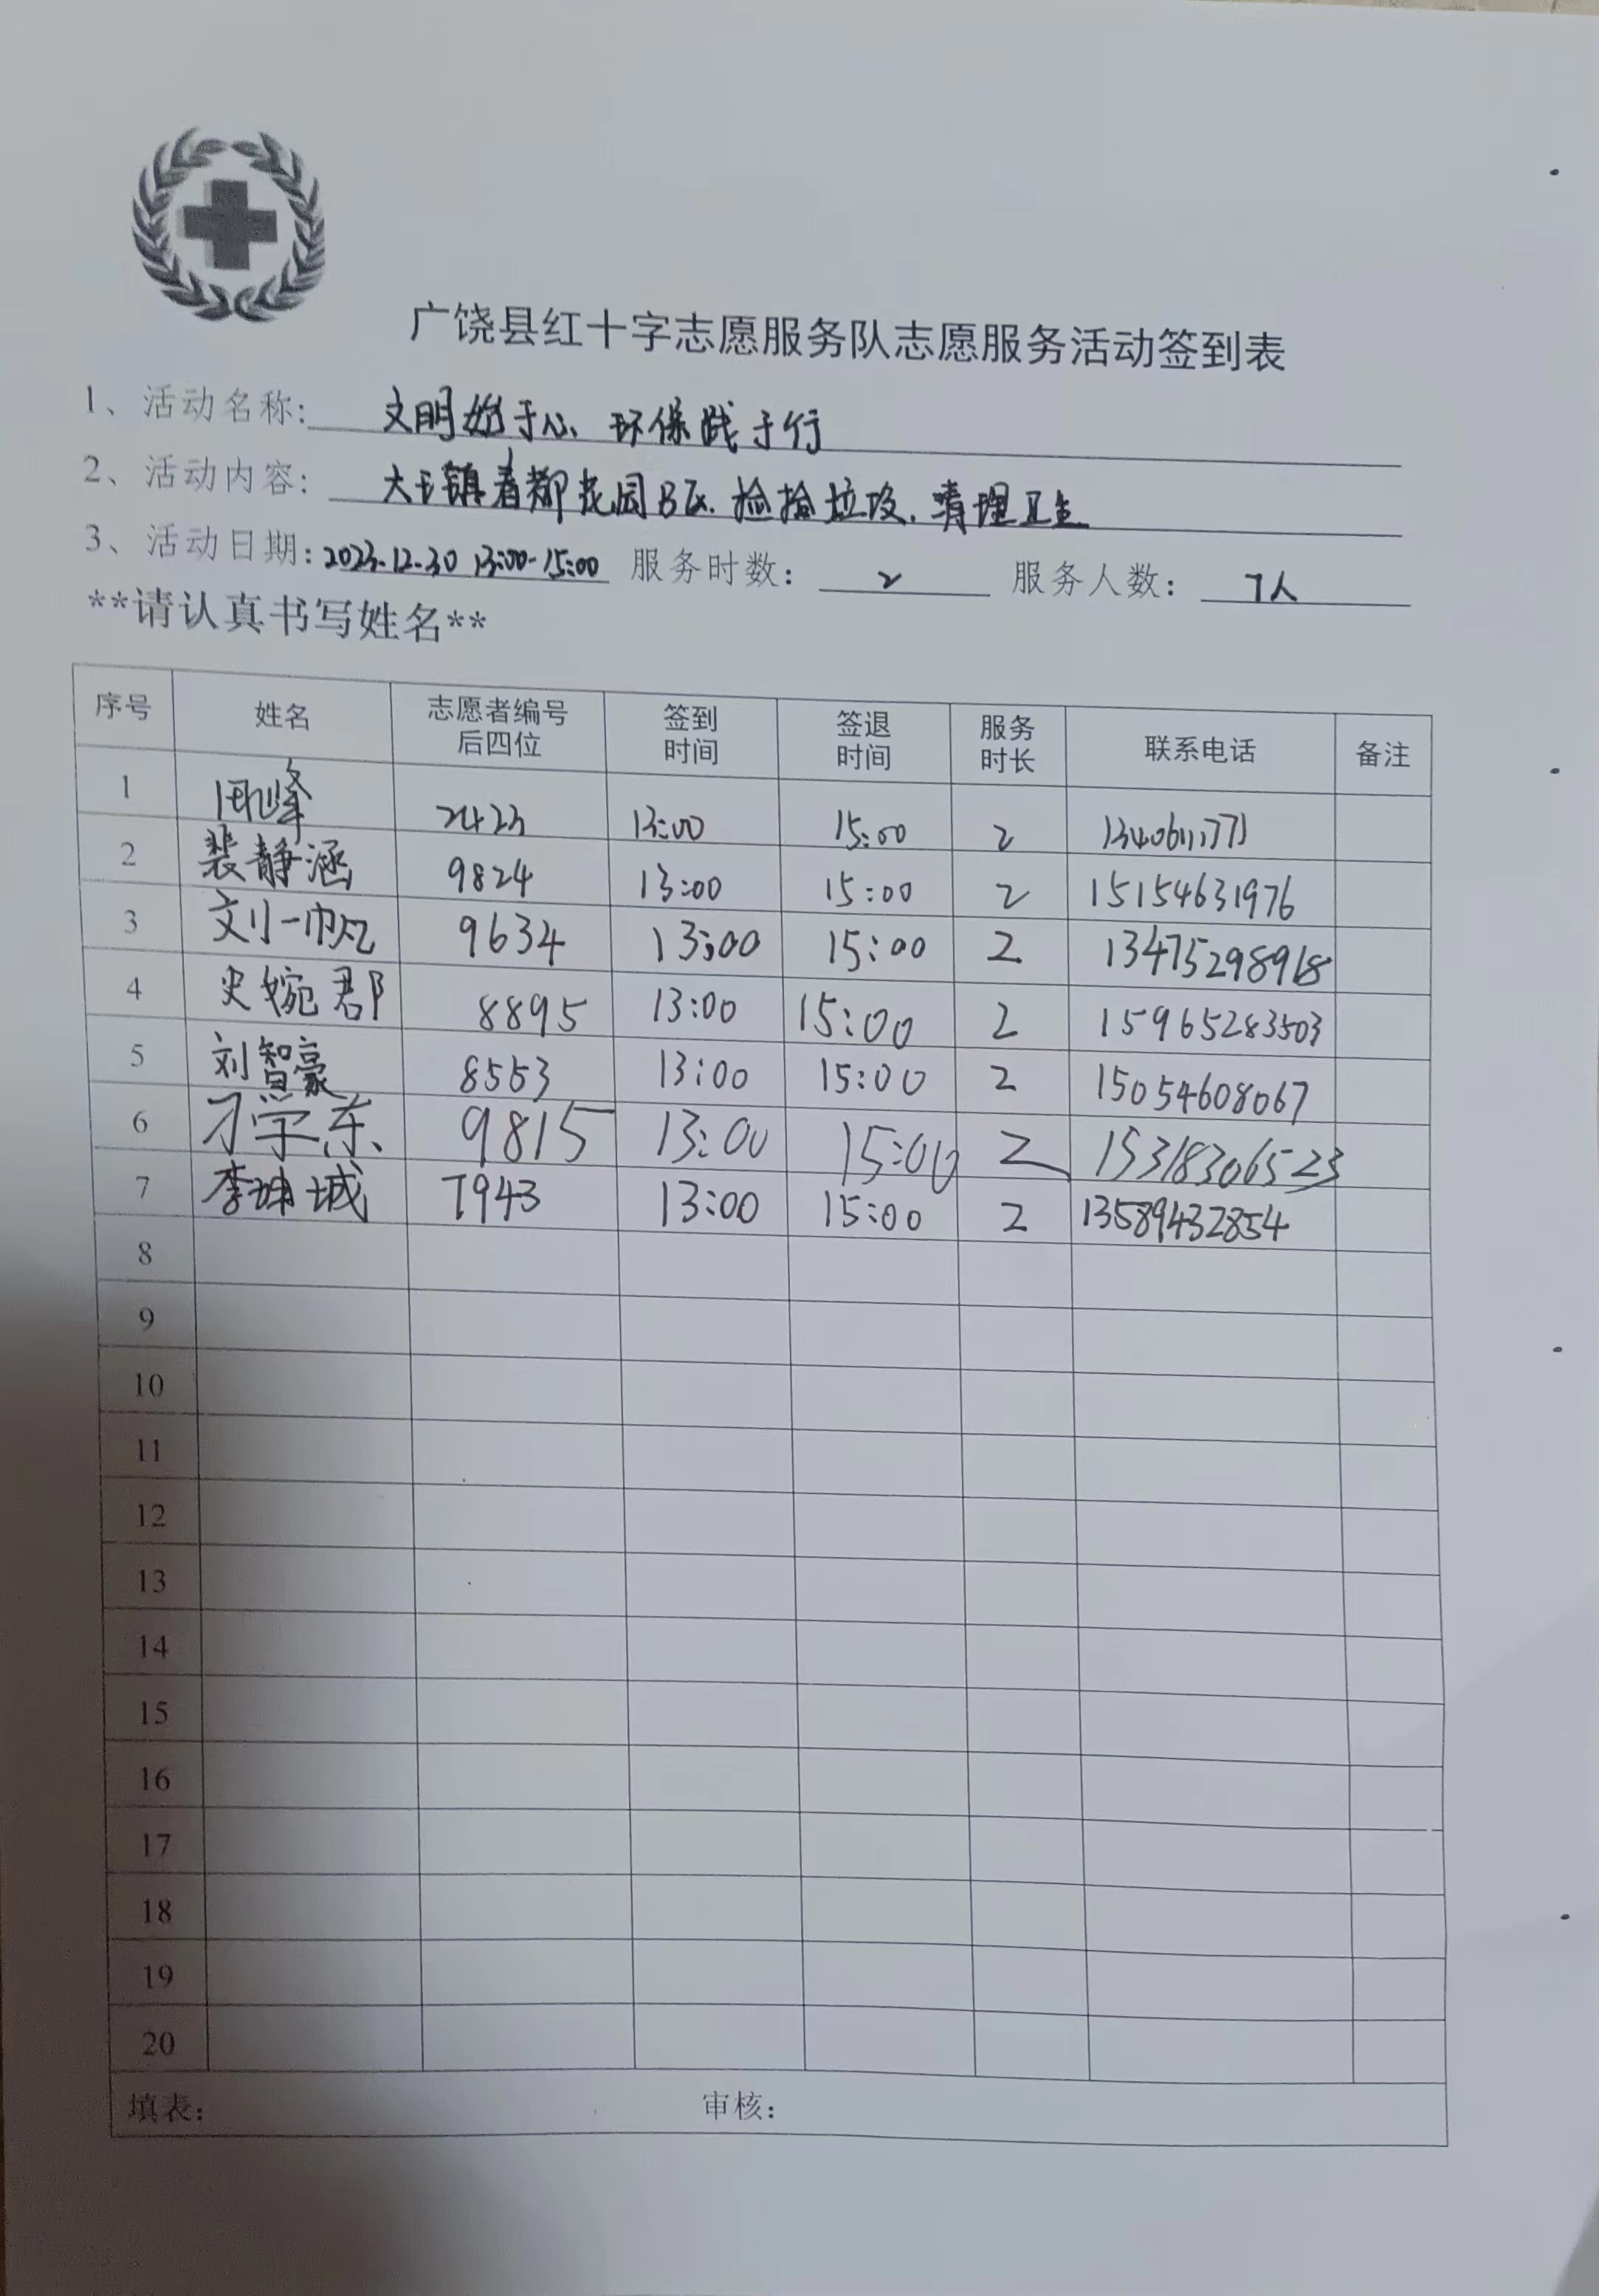 广饶县红十字志愿服务队志愿服务活动签到表
1、活动名称: 文明始于心、环保践于行
2、活动内容: 大王镇春都花园B区.捡拾垃圾.清理卫生
3、活动日期: 2023.12.30 13:00-15:00 服务时数: 2 服务人数: 7人
**请认真书写姓名**
序号 姓名 志愿者编号后四位 签到时间 签退时间 服务时长 联系电话 备注
1 2423 13:00 15:00 2
2 裴静涵 9824 13:00 15:00 2 15154631976
3 刘一帆 9634 13:00 15:00 2
4 史婉郡 8895 13:00 15:00 2 15965283503
5 刘智豪 8553 13:00 15:00 2 15054608067
6 刁学东 9815 13:00 15:00 2 15318306523
7 李坤城 7943 13:00 15:00 2 13589432854
8
9
10
11
12
13
14
15
16
17
18
19
20
填表: 审核: